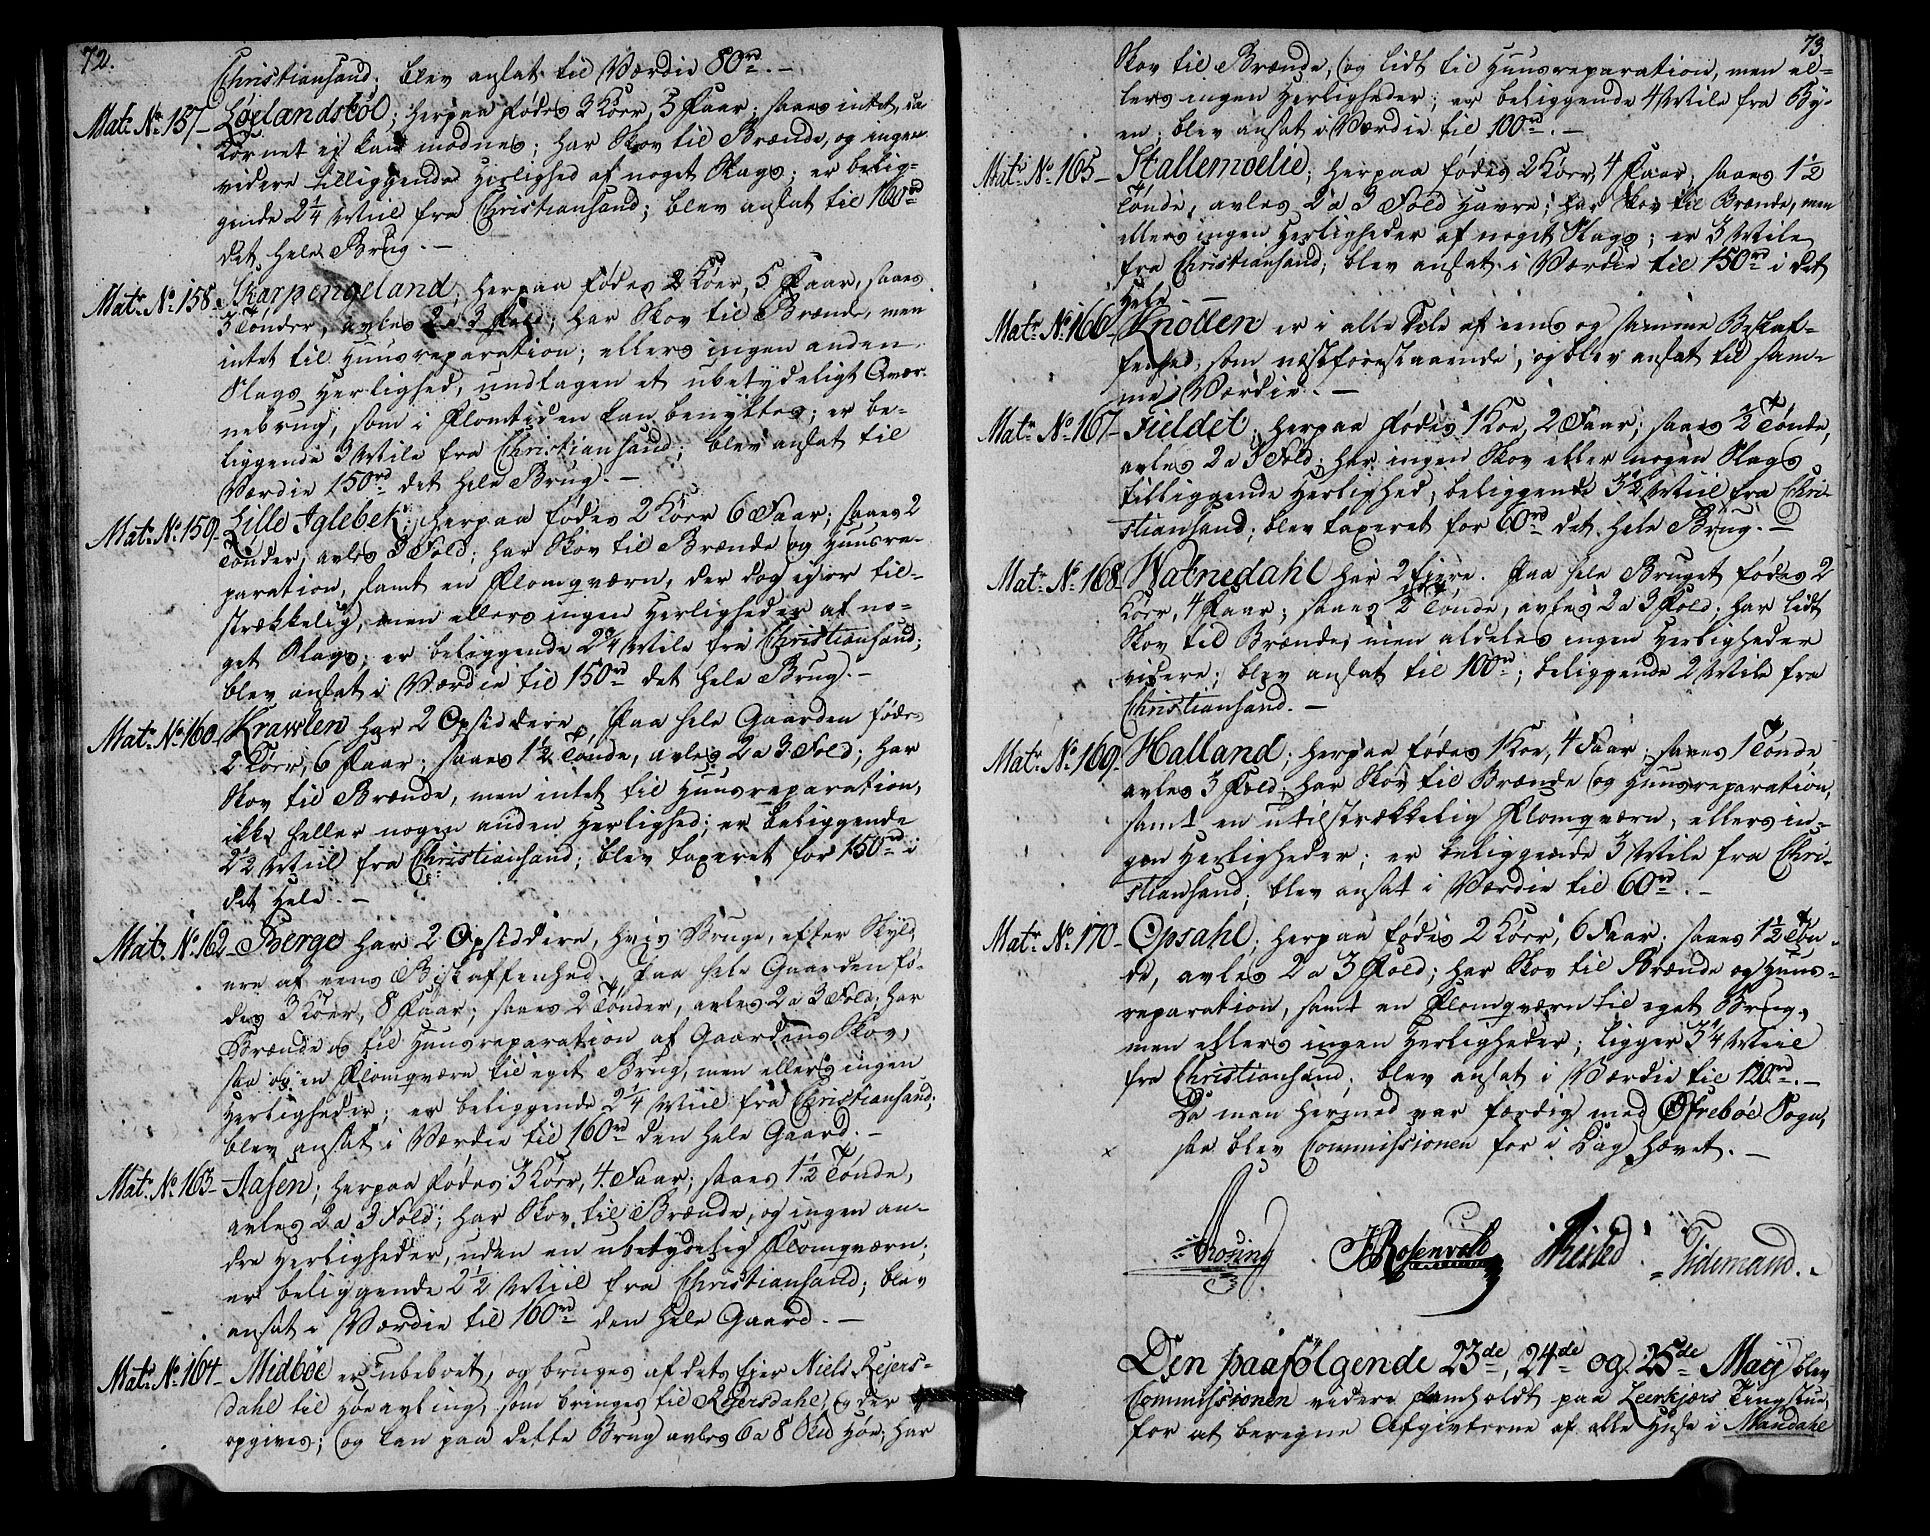 72.
Christiansand; blev ansat til Værdie 80rd. —
Mat: No 157 – Løglandstøl; herpaa fødes 3 Køer, 5 Faar; saaes intet, da
Kornet ei kan modnes; har Skov til Brænde, og ingen
videre tilliggende Herlighed af noget Slags; er belig-
gende 2 1/4 Miil fra Christiansand; blev ansat til 100rd
det hele Brug. —
Mat: No 158. Skarpengeland; herpaa fødes 2 Køer, 5 Faar, saaes
3 Tønder, avles 2 a 3 Fold; har Skov til Brænde, men
intet til Huusreparation; ellers ingen anden
Slags Herlighed, undtagen et ubetydeligt Qvær-
nebrug, som i Flomtiden kan benyttes; er be-
liggende 3 Mile fra Christiansand; blev ansat til
Værdie 150rd det hele Brug. —
Mat: No 159 – Lille Iglebek; herpaa fødes 2 Køer 6 Faar; saaes 2
Tønder, avles 3 Fold; har Skov til Brænde og Huusre-
paration, samt en Flomqværn, der dog ei er til-
strækkelig, men ellers ingen Herligheder af no-
get Slags; er beliggende 2 3/4 Mile fra Christiansand;
blev ansat i Værdie til 150rd det hele Brug. —
Mat: No 160 – Krawlen har 2 Opsiddere, Paa hele Gaarden fødes
2 Køer, 6 Faar; saaes 1 1/2 Tønde, avles 2 a 3 Fold; har
Skov til Brænde, men intet til Huusreparation,
ikke heller nogen anden Herlighed; er beliggende
2 1/2 Miil fra Christiansand; blev taxeret for 150rd i
det Hele. —
Mat: No 162 – Berge har 2 Opsiddere, hvis Bruge, efter Skyl-
ere af eens Beskaffenhed. Paa hele Gaarden fø-
des 3 Køer, 8 Faar; saaes 2 Tønder, avles 2 a 3 Fold; har
Brænde og til Huusreparation af Gaardens Skov,
saa og en Flomqværn til eget Brug, men ellers ingen
Herligheder; er beliggende 2 1/4 Miil fra Christiansand;
blev ansat i Værdie til 160rd den hele Gaard. —
Mat: No 163 – Aasen; herpaa fødes 3 Køer, 4 Faar; saaes 1 1/2 Tønde,
avles 2 a 3 Fold; har Skov til Brænde, og ingen an-
dre Herligheder, uden en ubetydelig Flomqværn;
er beliggende 2 1/2 Miil fra Christiansand; blev
ansat i Værdie til 100rd den hele Gaard. —
Mat: No 164 – Midbøe er ubeboet, og bruges af dets Eier Niels Reiers-
dahl til Høeavling, som bringes til Reiersdahl, og der
opgives; og kan paa dette Brug avles 6 a 8 Skd Høe; har
73
Skov til Brænde, og lidt til Huusreparation, men el-
lers ingen Herligheder; er beliggende 4 Mile fra By-
en; blev ansat i Værdie til 100rd. —
Mat: No 165 – Stallemoelie; herpaa fødes 2 Køer, 4 Faar; saaes 1 1/2
Tønde, avles 2 a 3 Fold Havre; har Skov til Brænde, men
ellers ingen Herligheder af noget Slags; er 3 Mile
fra Christiansand; blev ansat i Værdie til 150rd i det
Hele. —
Mat: No 166 – Knollen er i alle Dele af eens og samme Beskaf-
fenhed, som næstforestaaende, og blev ansat til sam-
me Værdie. —
Mat: No 167 – Fieldet; herpaa fødes 1 Koe, 2 Faar; saaes 1/2 Tønde,
avles 2 a 3 Fold; har ingen Skov eller nogen Slags
tilliggende Herlighed; beliggende 3 1/2 Miil fra Chri-
stiansand; blev taxeret for 60rd det hele Brug. —
Mat: No 168. Watnedahl har 2 Eiere. Paa hele Bruget fødes 2
Køer, 4 Faar; saaes 1/2 Tønde, avles 2 a 3 Fold; har lidt
Skov til Brænde, men aldeles ingen Herligheder
videre; blev ansat til 100rd; beliggende 2 Mile fra
Christiansand. —
Mat: No 169. Halland; herpaa fødes 1 Koe, 4 Faar; saaes 1 Tønde,
avles 3 Fold; har Skov til Brænde og Huusreparation,
samt en utilstrækkelig Flomqværn, ellers in-
gen Herligheder; er beliggende 3 Mile fra Chri-
stiansand; blev ansat i Værdie til 60rd. —
Mat: No 170 – Opsahl; herpaa fødes 2 Køer, 6 Faar; saaes 1 1/2 Tøn-
de, avles 2 a 3 Fold; har Skov til Brænde og Huus-
reparation, samt en Flomqværn til eget Brug,
men ellers ingen Herligheder; ligger 3 1/4 Miil
fra Christiansand; blev ansat i Værdie til 120rd. —
Da man hermed var færdig med Øfrebøe Sogn,
saa blev Commissionen for i Dag hævet. —
Rosenvold Tidemand.
Den paafølgende 23de, 24de og 25de Maij blev
Commissionen videre fremholdt paa Leerkjærs Tingstue
for at beregne Afgivterne af alle Huse i Mandahl